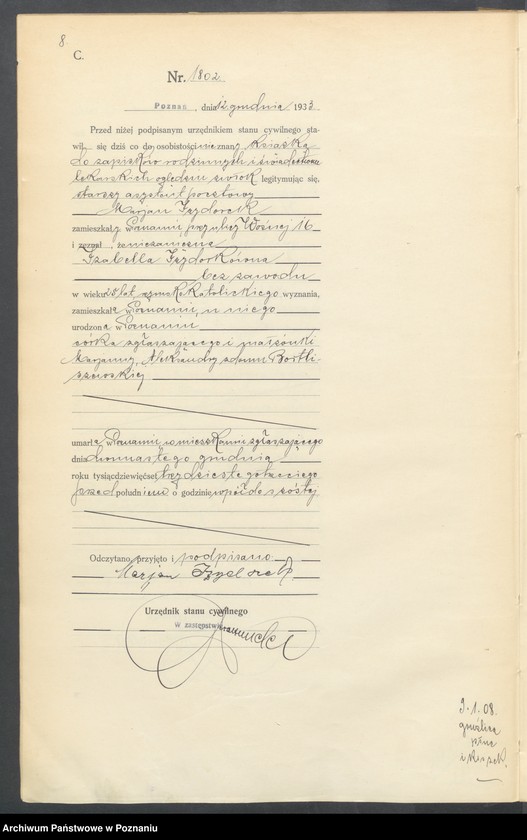 8
C.
Nr. 1802.
Poznań, dnia 12 grudnia 1933
Przed niżej podpisanym urzędnikiem stanu cywilnego sta-
wił się dziś co do osobistości nieznany książką
do zapisków rodzinnych i świadectwem
lekarskich oględzin zwłok legitymując się,
starszy asystent pocztowy
Marjan Izydorek
zamieszkały w Poznaniu, przy ulicy Woźnej 16
i zeznał, że niezamężna
Izabella Izydorkówna
bez zawodu
w wieku lat, rzymsko katolickiego wyznania,
zamieszkała w Poznaniu, u niego
urodzona w Poznaniu
córka zgłaszającego i małżonki
Marjanny, Aleksandry z domu
umarła w Poznaniu, w mieszkaniu zgłaszającego
dnia dwunastego grudnia
roku tysiącdziewięćset trzydziestego trzeciego
przed południem o godzinie wpół do szóstej
Odczytano, przyjęto i podpisano
Marjan Izydorek
Urzędnik stanu cywilnego
w zastępstwie
9.1.08.
gruźlica
płuc
i kiszek.
Archiwum Państwowe w Poznaniu